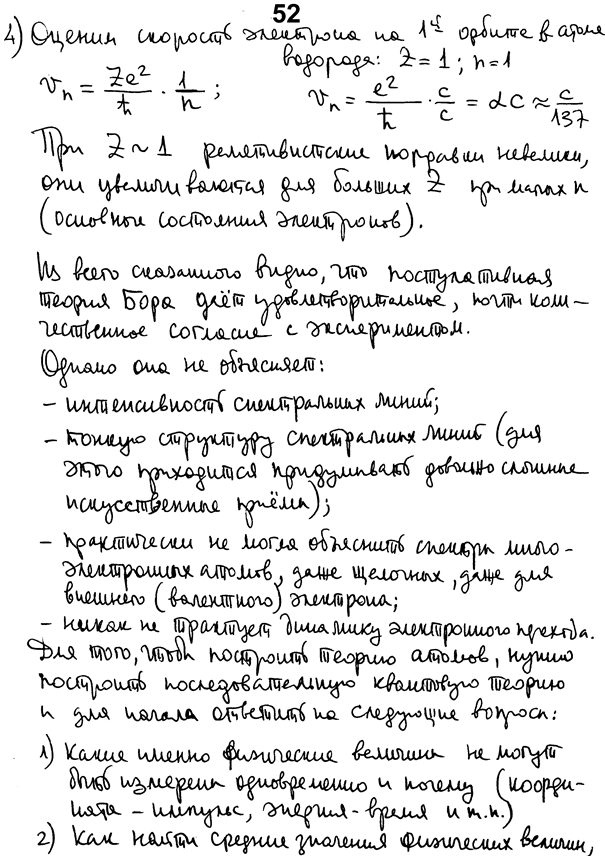 52
4) Оценим скорость электрона на 1й орбите в атоме
водорода: Z = 1; n = 1
vₙ = Ze²/ħ · 1/n ; vₙ = e²/ħ · c/c = αc ≈ c/137
При Z ~ 1 релятивистские поправки невелики,
они увеличиваются для больших Z при малых n
(основное состояния электронов).
Из всего сказанного видно, что постулативная
теория Бора даёт удовлетворительное, почти коли-
чественное согласие с экспериментом.
Однако она не объясняет:
- интенсивность спектральных линий;
- тонкую структуру спектральных линий (для
этого приходится придумывать довольно сложные
искусственные приёмы);
- практически не могла объяснить спектры много-
электронных атомов, даже щелочных, даже для
внешнего (валентного) электрона;
- никак не трактует динамику электронного перехода.
Для того, чтобы построить теорию атомов, нужно
построить последовательную квантовую теорию
и для начала ответить на следующие вопросы:
1) Какие именно физические величины не могут
быть измерены одновременно и почему (коорди-
ната - импульс, энергия - время и т.п.)
2) Как найти средние значения физических величин,